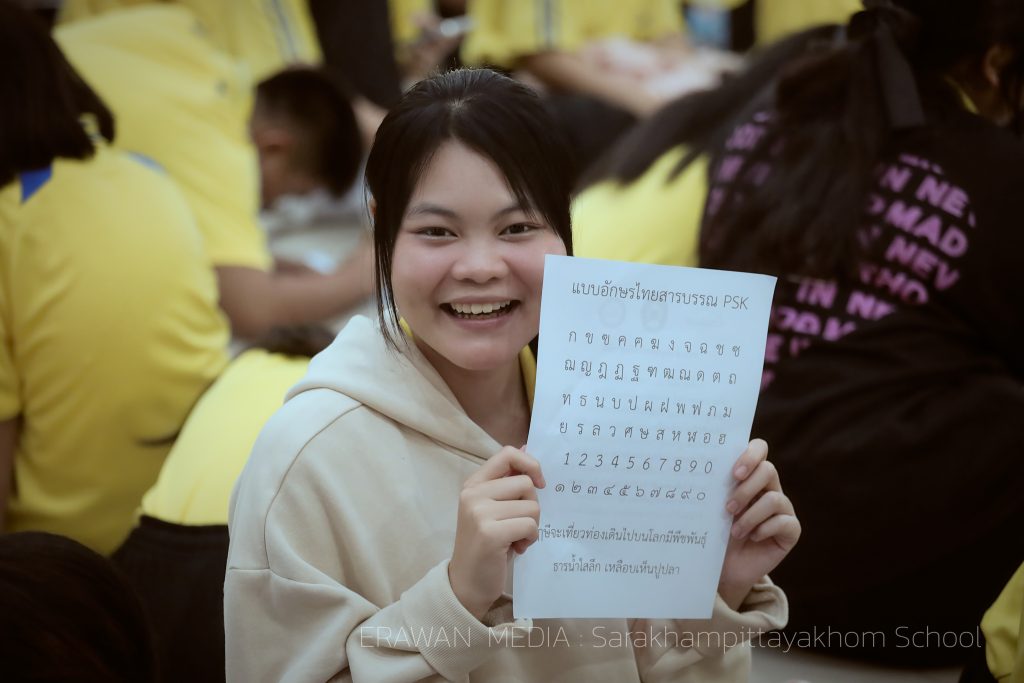 แบบอักษรไทยสารบรรณ PSK
ก ข ฃ ค ฅ ฆ ง จ ฉ ช ซ
ฌ ญ ฎ ฏ ฐ ฑ ฒ ณ ด ต ถ
ท ธ น บ ป ผ ฝ พ ฟ ภ ม
ย ร ล ว ศ ษ ส ห ฬ อ ฮ
1 2 3 4 5 6 7 8 9 0
๑ ๒ ๓ ๔ ๕ ๖ ๗ ๘ ๙ ๐
ฤๅษีจะเที่ยวท่องเดินไปบนโลกมีพืชพันธุ์
ธารน้ำใสลึก เหลือบเห็นปูปลา
IN NE
MAD
NEV
IN N
ERAWAN MEDIA : Sarakhampittayakhom School